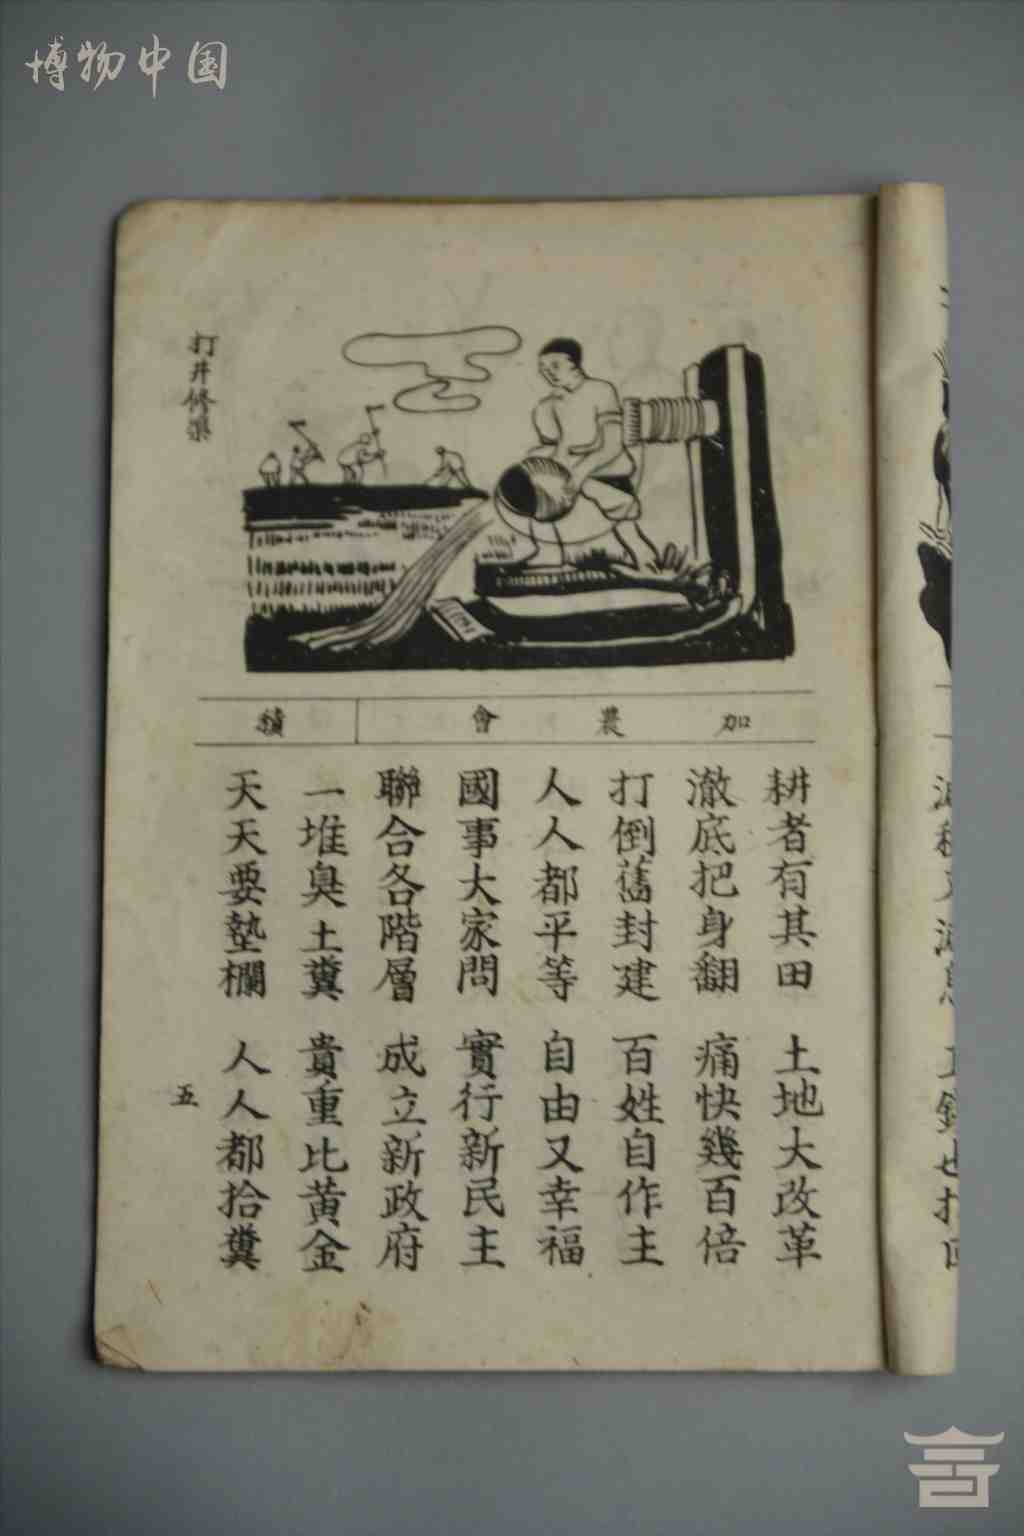 博物中国
打井修渠
加農會
積
耕者有其田 土地大改革
澈底把身翻 痛快幾百倍
打倒舊封建 百姓自作主
人人都平等 自由又幸福
國事大家問 實行新民主
聯合各階層 成立新政府
一堆臭土糞 貴重比黃金
天天要墊欄 人人都拾糞
五